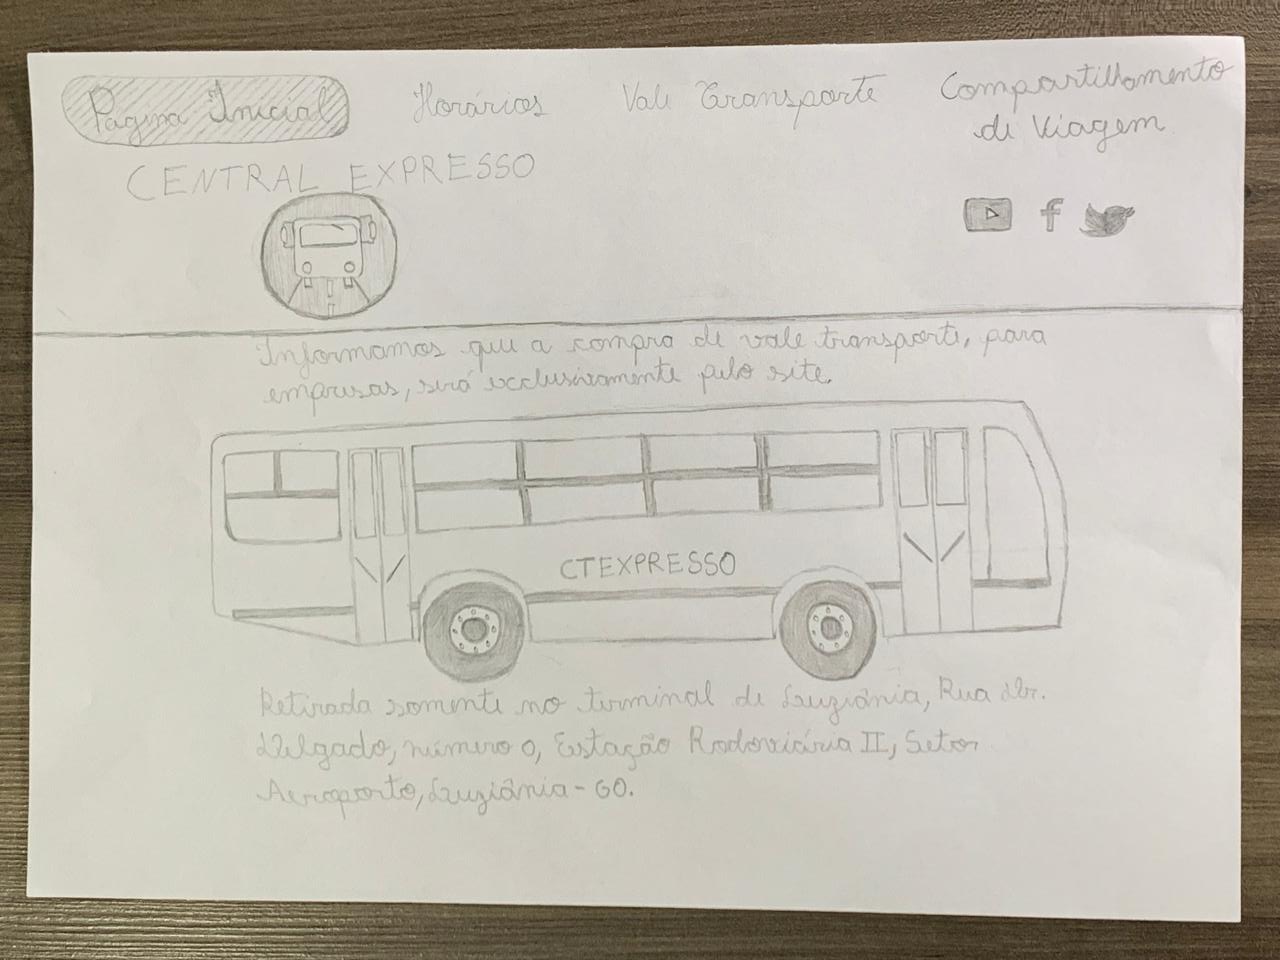 Página Inicial
Horários
Vale Transporte
Compartilhamento
de Viagem
CENTRAL EXPRESSO
f
Informamos que a compra de vale transporte, para
empresas, será exclusivamente pelo site.
CTEXPRESSO
Retirada somente no terminal de Luziânia, Rua Dr.
Delgado, número 0, Estação Rodoviária II, Setor
Aeroporto, Luziânia - GO.